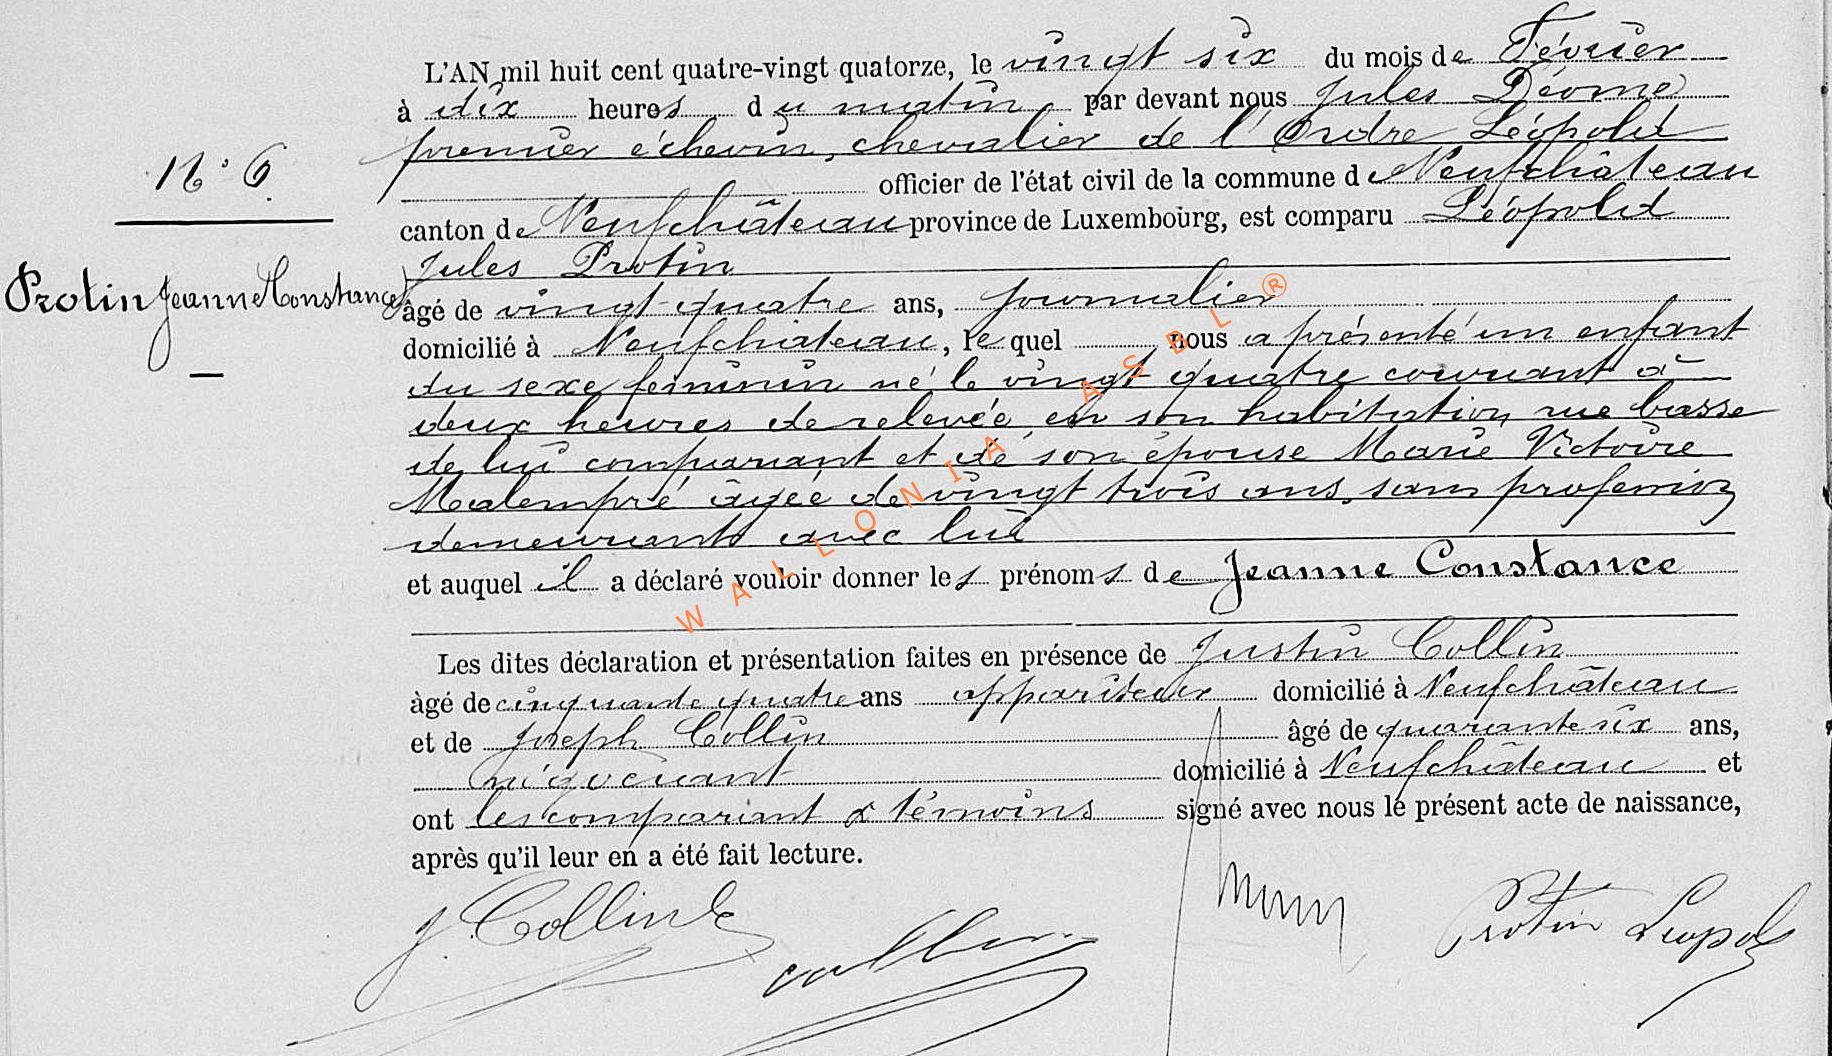 L'AN mil huit cent quatre-vingt quatorze, le vingt six du mois de Février
à dix heures du matin par devant nous Jules Déome
premier échevin, chevalier de l'Ordre Léopold
N° 6
officier de l'état civil de la commune de Neufchâteau
canton de Neufchâteau province de Luxembourg, est comparu Léopold
Jules Protin
Protin Jeanne Constance
âgé de vingt-quatre ans, journalier
domicilié à Neufchateau, lequel nous a présenté un enfant
du sexe féminin né le vingt quatre courant à
deux heures de relevée, en son habitation, rue basse
de lui comparant et de son épouse Marie Victoire
Malempré âgée de vingt trois ans, sans profession
demeurant avec lui
et auquel il a déclaré vouloir donner les prénoms de Jeanne Constance
Les dites déclaration et présentation faites en présence de Justin Collin
âgé de cinquante quatre ans appariteur domicilié à Neufchâteau
et de Joseph Collin âgé de quarante six ans,
négociant domicilié à Neufchâteau et
ont les comparant & témoins signé avec nous le présent acte de naissance,
après qu'il leur en a été fait lecture.
J. Collin
Collin
Protin Léopold
WALLONIA ASBL ®